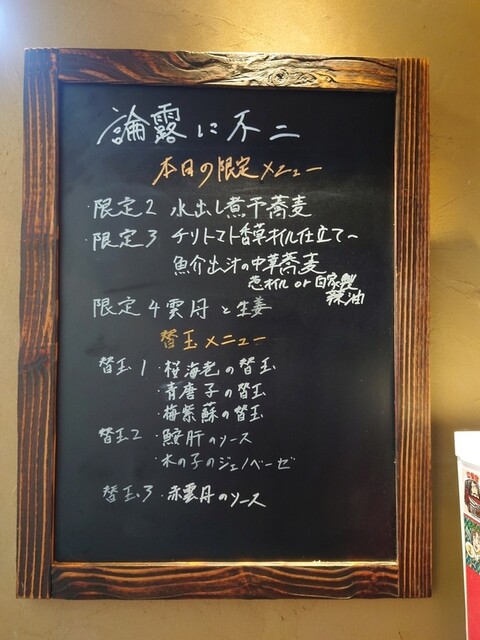 論露に不二
本日の限定メニュー
・限定2 水出し煮干蕎麦
・限定3 チリトマト香草オイル仕立て〜
魚介出汁の中華蕎麦
葱オイル or 自家製
辣油
限定4 雲丹と生姜
替玉メニュー
替玉1・桜海老の替玉
・青唐子の替玉
・梅紫蘇の替玉
替玉2・鮟肝のソース
・木の子のジェノベーゼ
替玉3・赤雲丹のソース